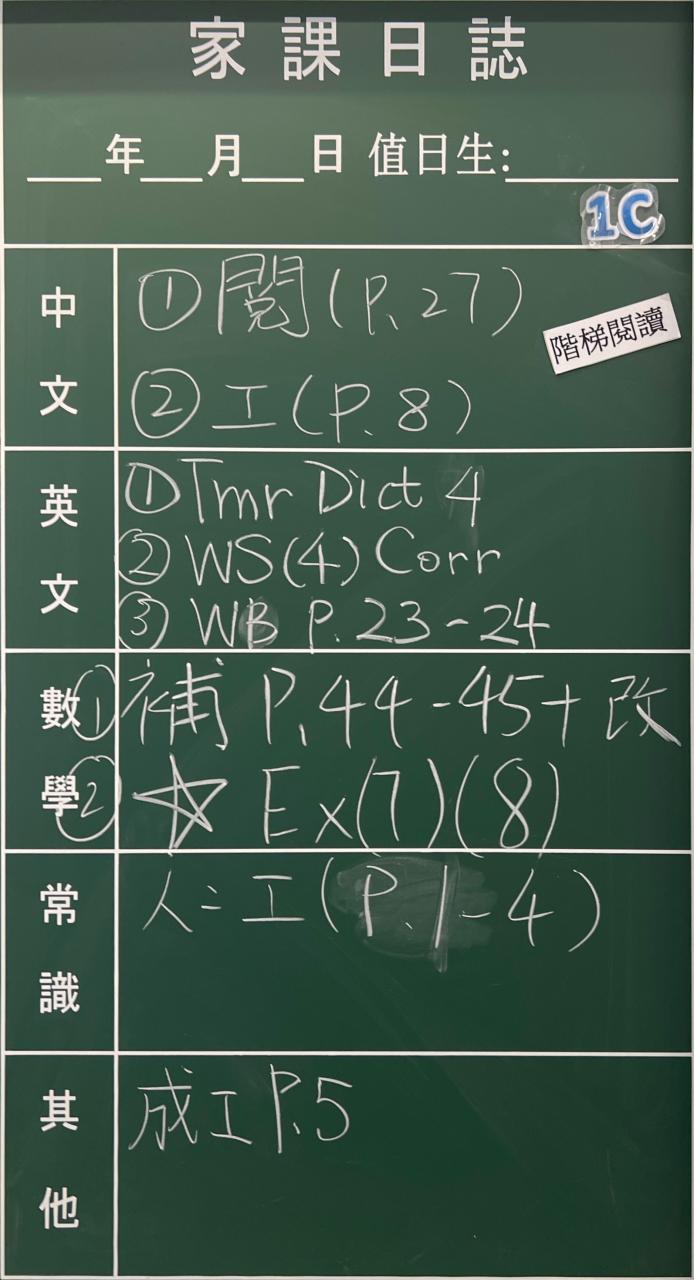 家課日誌
___年___月___日 值日生:________
1C
中文
①閱(P.27)
階梯閱讀
②工(P.8)
英文
①Tmr Dict 4
②WS(4) Corr
③WB P.23-24
數學
①補 P.44-45+改
②☆ Ex(7)(8)
常識
人二工(P.1-4)
其他
成工P.5